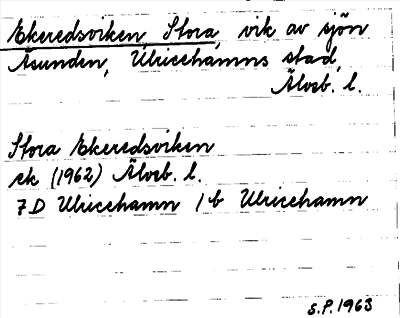 Ekeredsviken, Stora, vik av sjön
Åsunden, Ulricehamns stad,
Älvsb. l.
Stora Ekeredsviken
ek (1962) Älvsb. l.
7D Ulricehamn 1b Ulricehamn
S.P. 1963